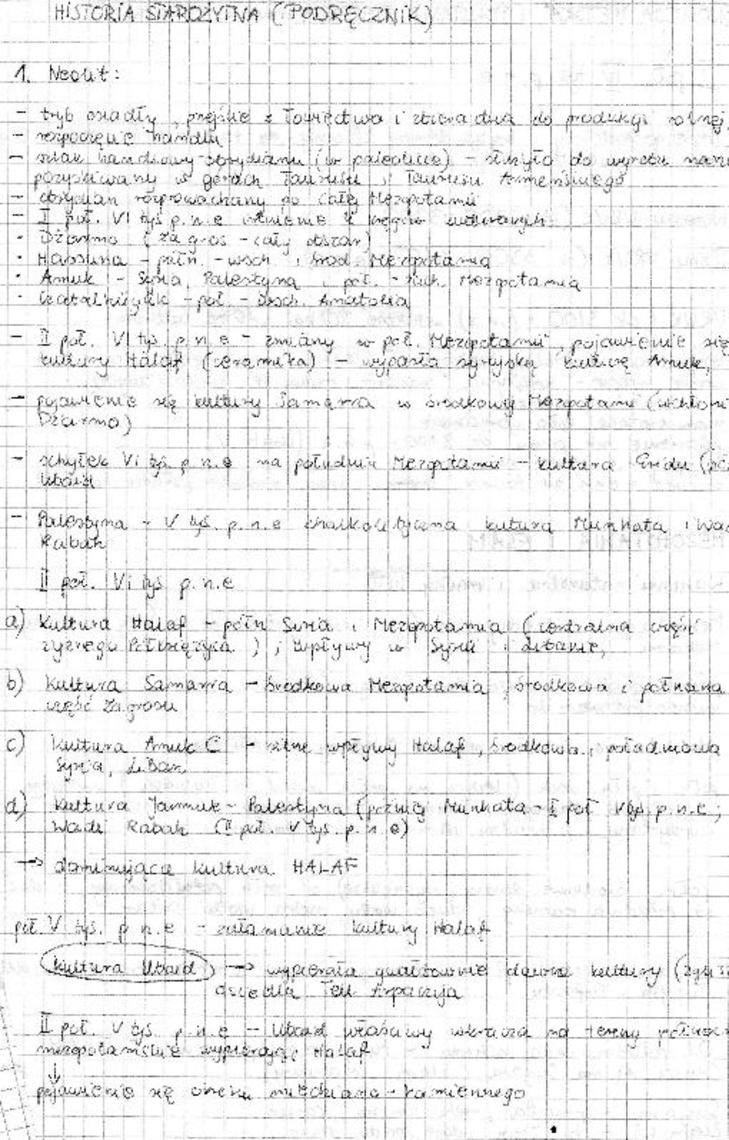 HISTORIA STAROŻYTNA (PODRĘCZNIK)
1. Neolit:
- tryb osiadły, przejście z łowiectwa i zbieractwa do produkcji rolnej,
- rozpoczęcie handlu
- szlak handlowy obsydianu (w paleolicie) - służyło do wyrobu
pozyskiwany w górach Taurusu i Taurusu Armeńskiego
- obsydian rozprowadzany po całej Mezopotamii
- I poł. VI tys p.n.e istnienie 4 kręgów kulturowych
· Dżarmo (Zagros - cały obszar)
· Hassuna - półn. - wsch. i środ. Mezopotamia
· Amuk - Syria, Palestyna i poł. - zach. Mezopotamia
· Czatalhüyük - poł. - wsch. Anatolia
- II poł. VI tys. p.n.e - zmiany w poł. Mezopotamii, pojawienie się
kultury Halaf (ceramika) - wyparła syryjską kulturę Amuk,
- pojawienie się kultury Samarra w środkowej Mezopotamii
Dżarmo)
- schyłek VI tys. p.n.e na południu Mezopotamii - kultura Eridu
Ubaid
- Palestyna - V tys. p.n.e chalkolityczna kultura Munhata i Wadi
Rabah
II poł. VI tys p.n.e
a) Kultura Halaf - półn Syria i Mezopotamia (centralna część
żyznego Półksiężyca), wpływy w Syrii i Libanie,
b) Kultura Samarra - środkowa Mezopotamia, środkowa i północna
część Zagrosu
c) Kultura Amuk C - silne wpływy Halaf, środkowa, południowa
Syria, Liban
d) Kultura Jarmuk - Palestyna (później Munhata - I poł V tys. p.n.e;
Wadi Rabah (II poł. V tys. p.n.e)
→ dominująca kultura HALAF
poł. V tys. p.n.e - załamanie kultury Halaf
Kultura Ubaid → wypierała gwałtownie dawne kultury
osiedla Tell Arpaczija
II poł. V tys. p.n.e - Ubaid właściwy wkracza na tereny
mezopotamskie wypierając Halaf
↓
pojawienie się okresu miedziano - kamiennego